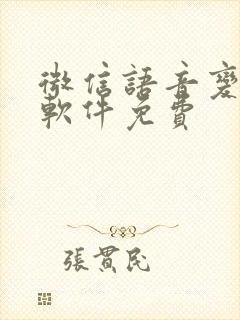 微信語音變
軟件免費
張貫民